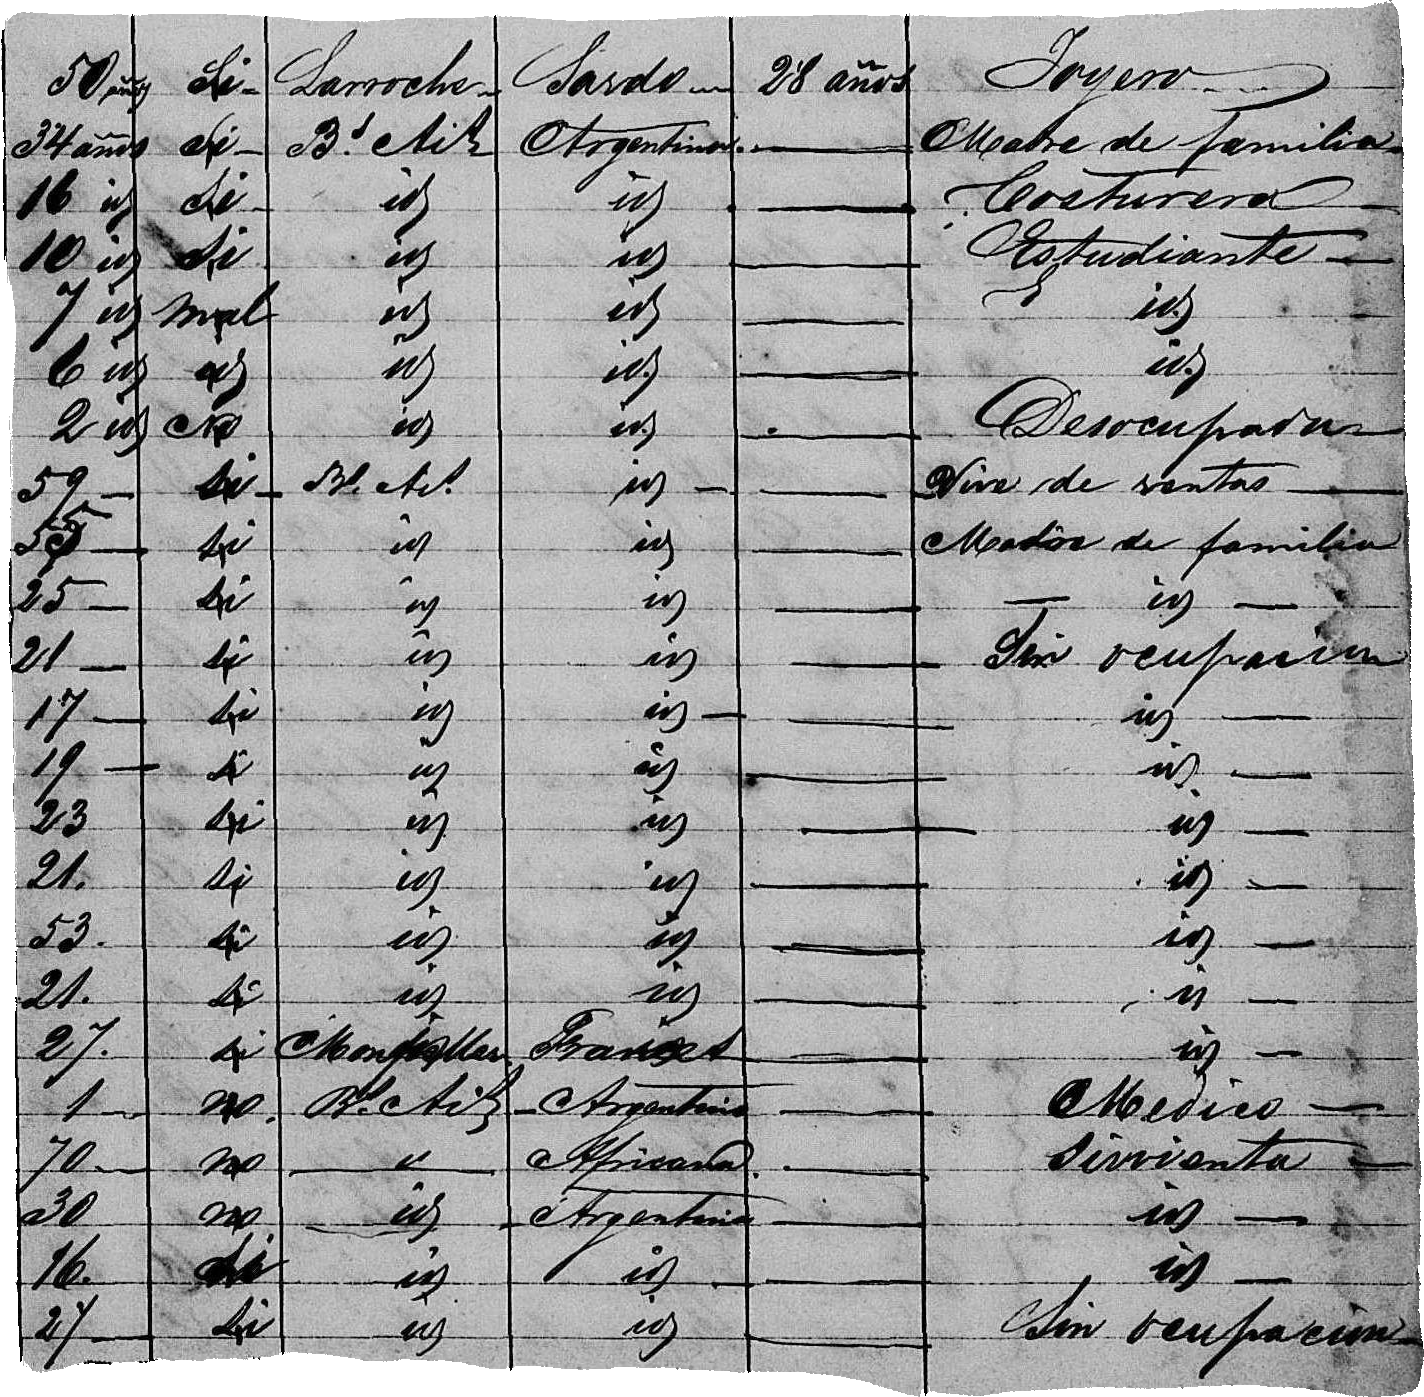 50 años Si - Larroche - Sardo - 28 años Joyero
34 años Si - Bs. Ais Argentina - — Madre de familia
16 id Si - id id — Costurera
10 id Si id id — Estudiante —
7 id mal id id — id.
6 id id id id. — id.
2 id No id id — Desocupada
59 - Si - Bs. As. id - — Vive de rentas —
— si id id — Madre de familia
25 - si id id — — id —
21 - si id id — Sin ocupacion
17 - si id id - — id —
19 - si id id — id —
23 si id id — id —
21. si id id — id —
53. si id id — id —
21. si id id — id —
27. si — id —
1 - no. Bs. Ais - Argentino — Medico —
70 - no — " — Africana. — Sirvienta —
30 no — id - Argentina — id —
16. Si id id - — id —
27 - Si id id — Sin ocupacion